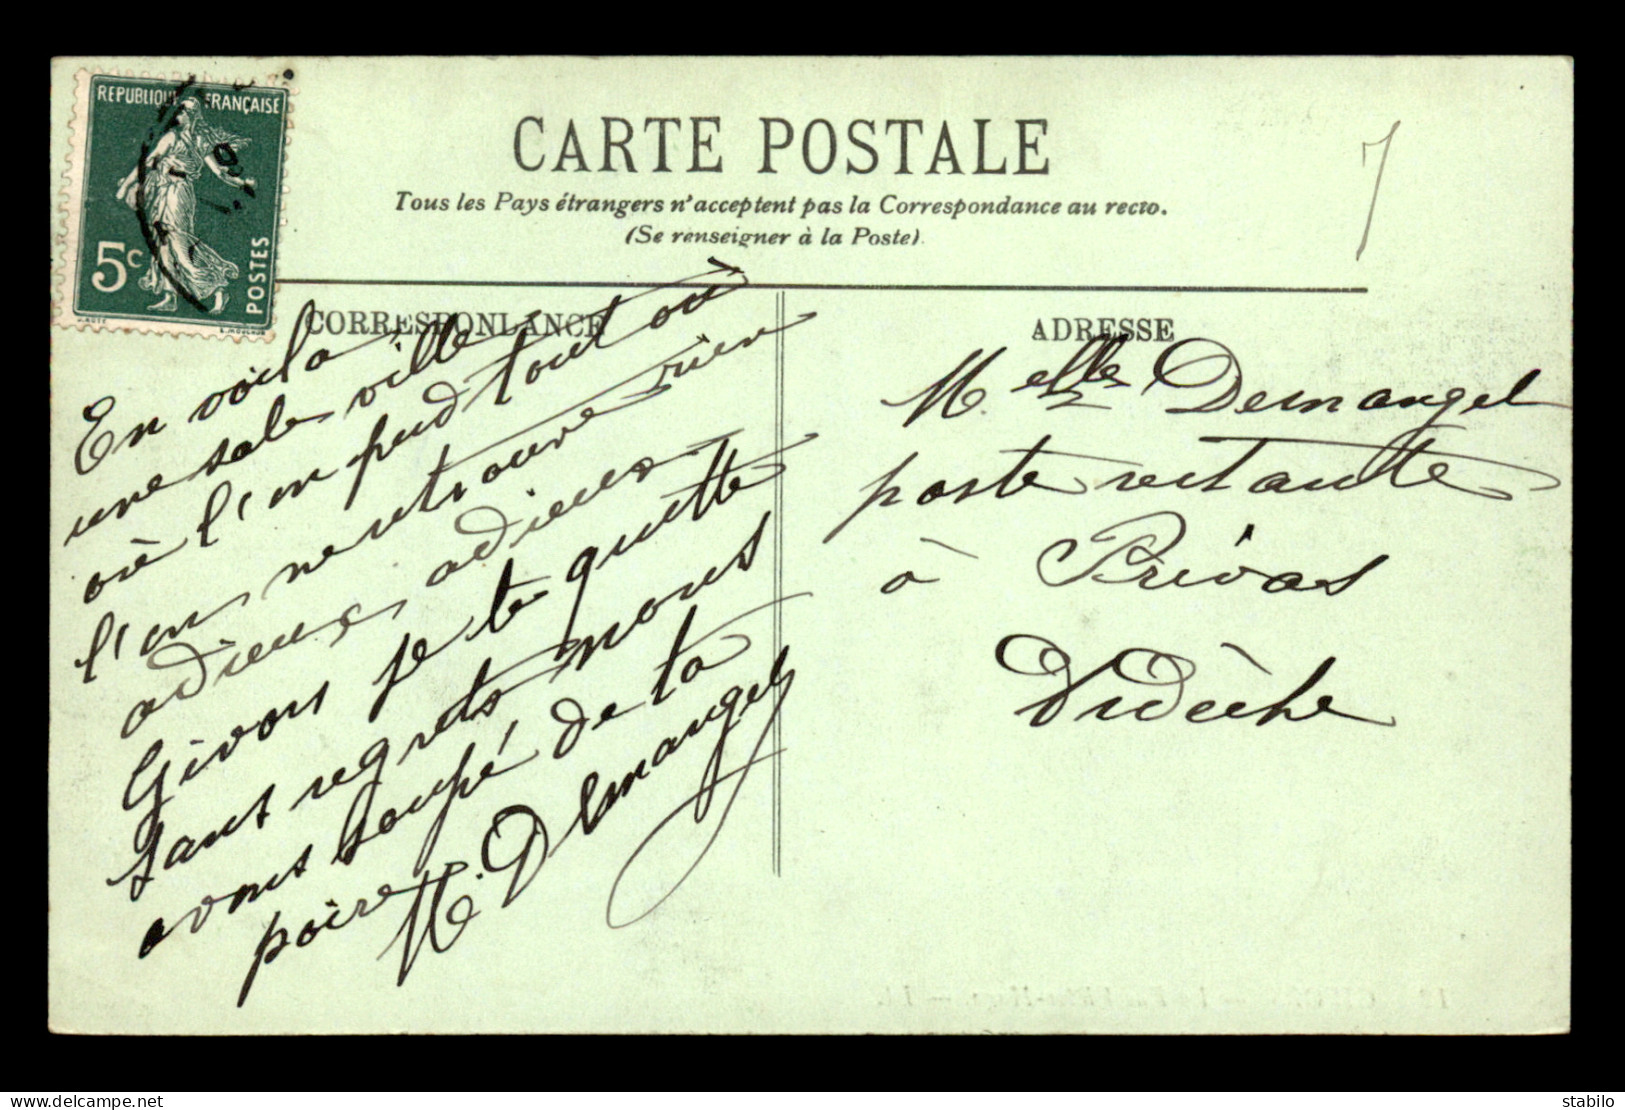 REPUBLIQUE FRANÇAISE
5c
POSTES
CARTE POSTALE
Tous les Pays étrangers n'acceptent pas la Correspondance au recto.
(Se renseigner à la Poste)
CORRESPONDANCE
En voila
une sale ville
où l'on perd tout où
l'on ne retrouve rien
adieux adieux
Givors je te quitte
sans regrets nous
avons soupé de ta
poire
M. Demangel
ADRESSE
M.elles Demangel
poste restante
à Privas
Ardèche
7
delcampe.net
stabilo